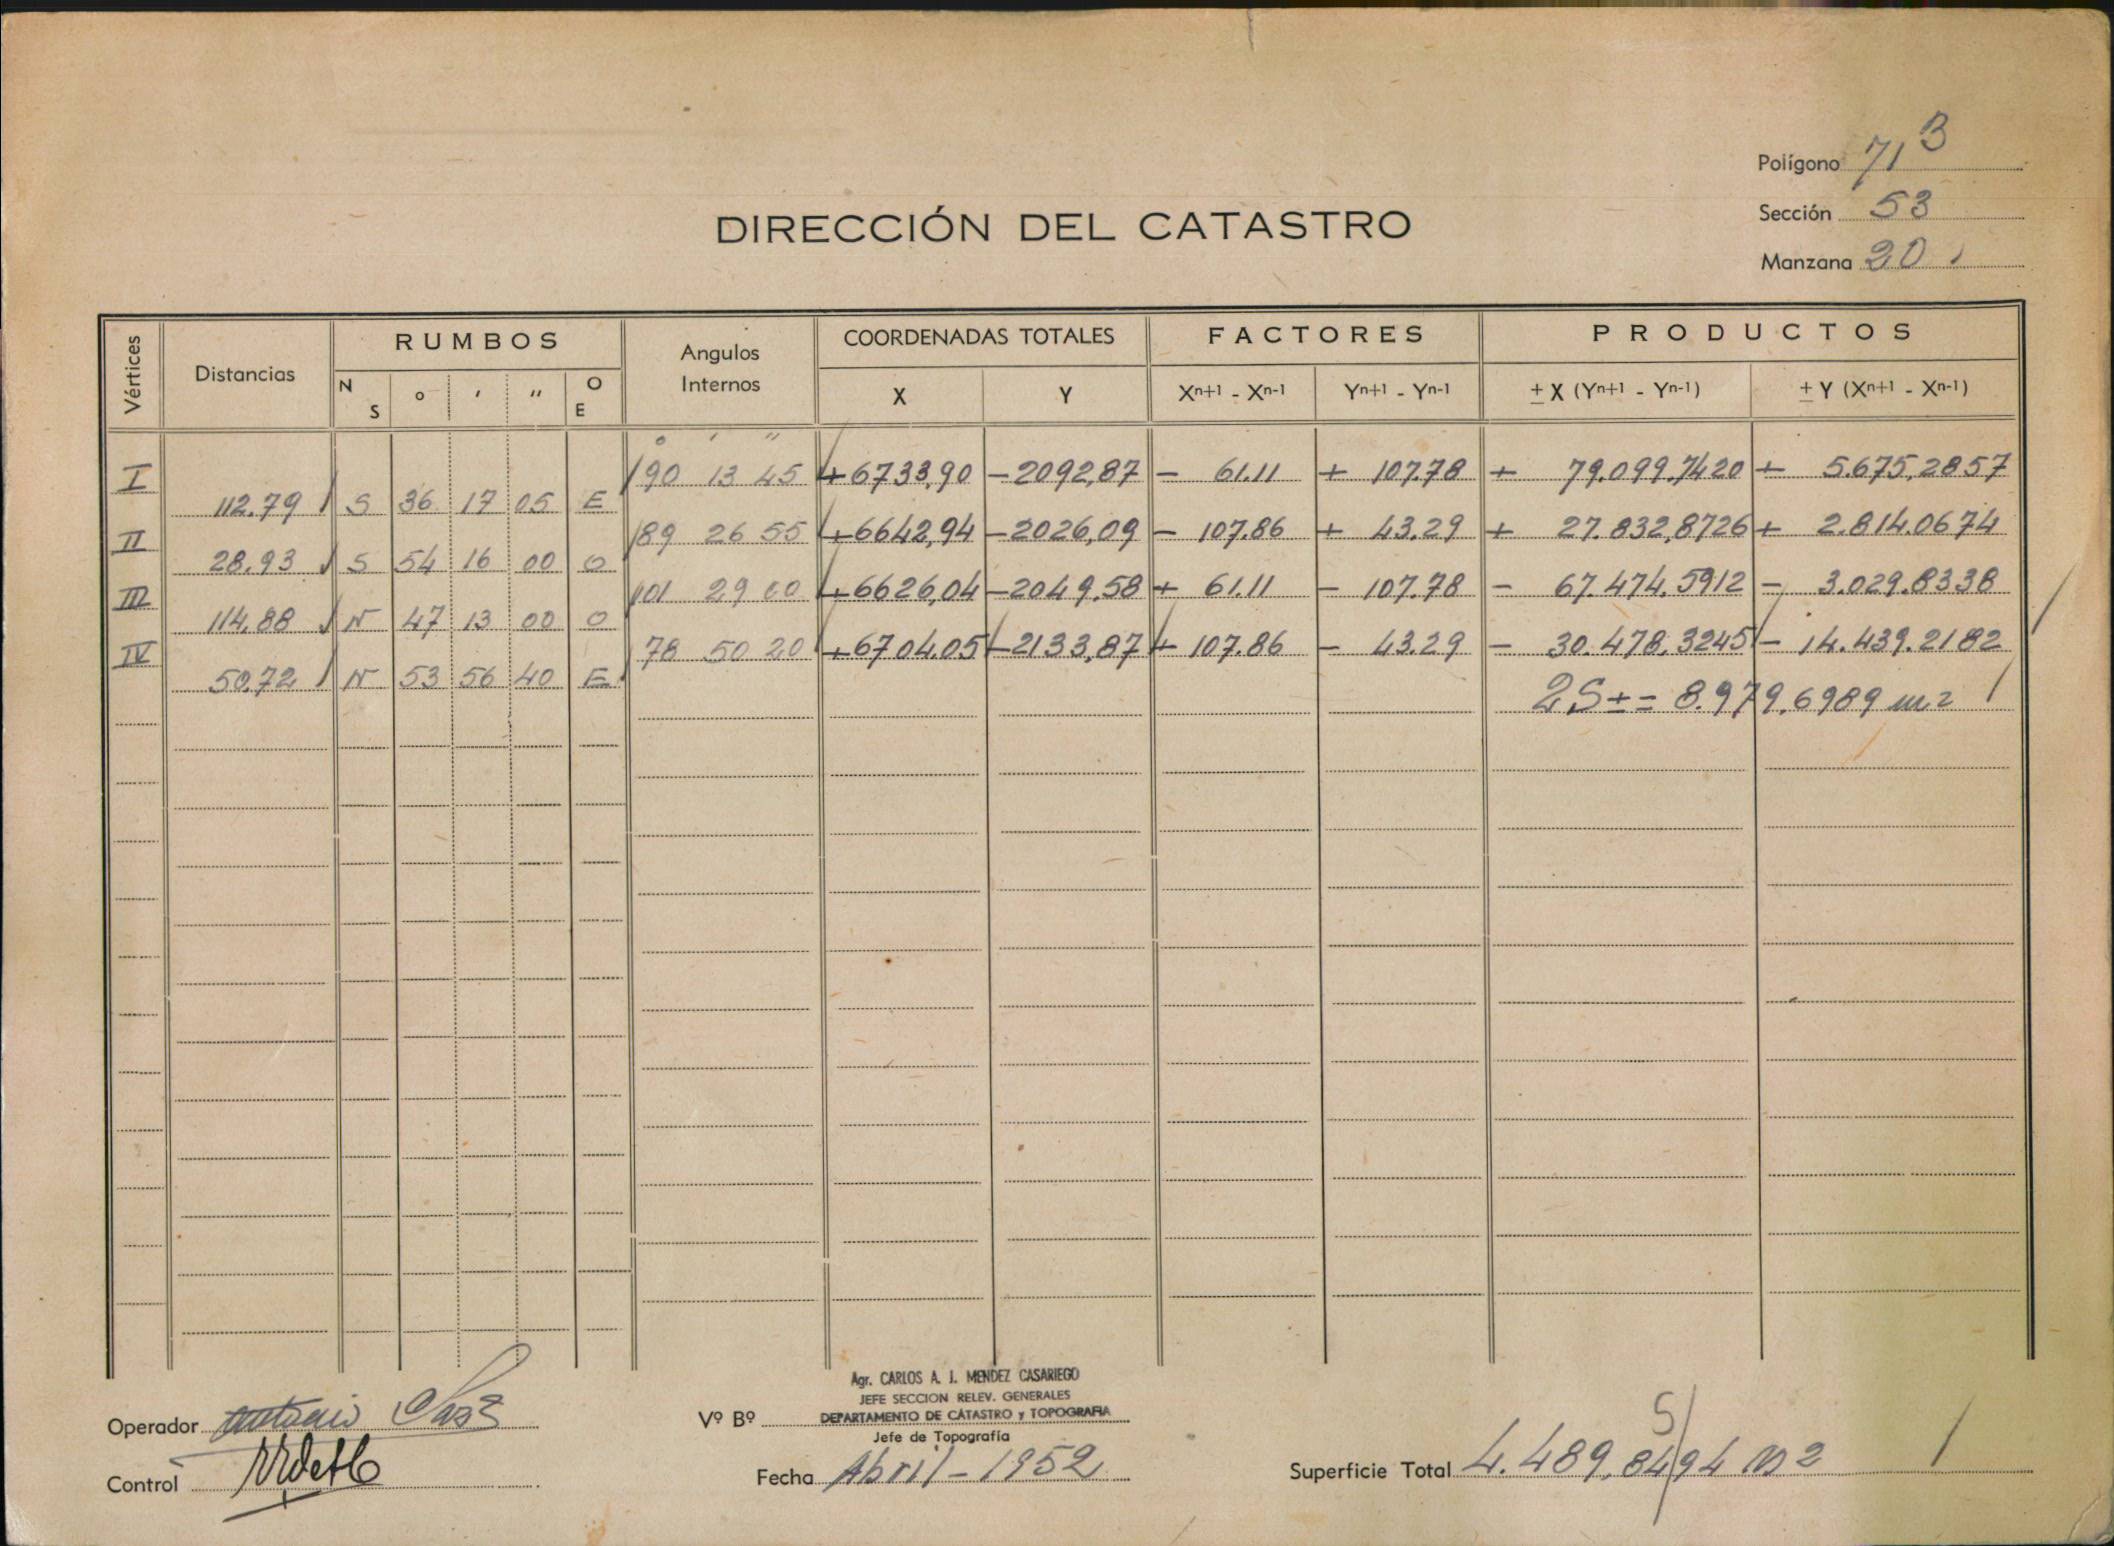 Polígono 71 B
Sección 53
Manzana 20
DIRECCIÓN DEL CATASTRO
Vértices Distancias RUMBOS Angulos Internos COORDENADAS TOTALES FACTORES PRODUCTOS
N S ° ' " O E X Y Xn+1 - Xn-1 Yn+1 - Yn-1 ± X (Yn+1 - Yn-1) ± Y (Xn+1 - Xn-1)
° ' "
I 90 13 45 +6733,90 -2092,87 - 61.11 + 107.78 + 79.099.7420 + 5.675,2857
112.79 S 36 17 05 E
II 89 26 55 +6642,94 -2026,09 - 107.86 + 43.29 + 27.832,8726 + 2.814.0674
28.93 S 54 16 00 O
III 101 29 00 +6626,04 -2049.58 + 61.11 - 107.78 - 67.474.5912 - 3.029.8338
114.88 N 47 13 00 O
IV 78 50 20 +6704.05 -2133,87 + 107.86 - 43.29 - 30.478.3245 - 14.439.2182
50.72 N 53 56 40 E
2S ± = 8.979,6989 m2
Agr. CARLOS A. J. MENDEZ CASARIEGO
JEFE SECCION RELEV. GENERALES
Operador Antonio
Vº Bº DEPARTAMENTO DE CATASTRO y TOPOGRAFIA
Jefe de Topografía
5
Control
Fecha Abril - 1952
Superficie Total 4.489.8494 m2